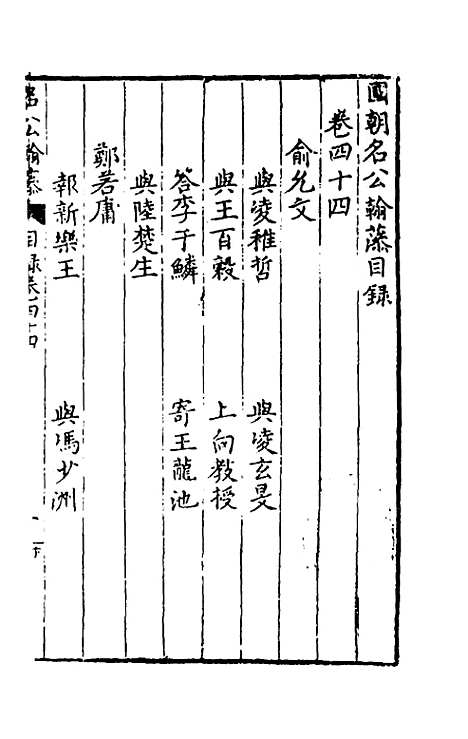 國朝名公翰藻目録
卷四十四
俞允文
與凌稚哲　與凌玄旻
與王百穀　上向教授
答李于鱗　寄王龍池
與陸楚生
鄭若庸
報新樂王　與馮少洲
名公翰藻 目録卷四十四